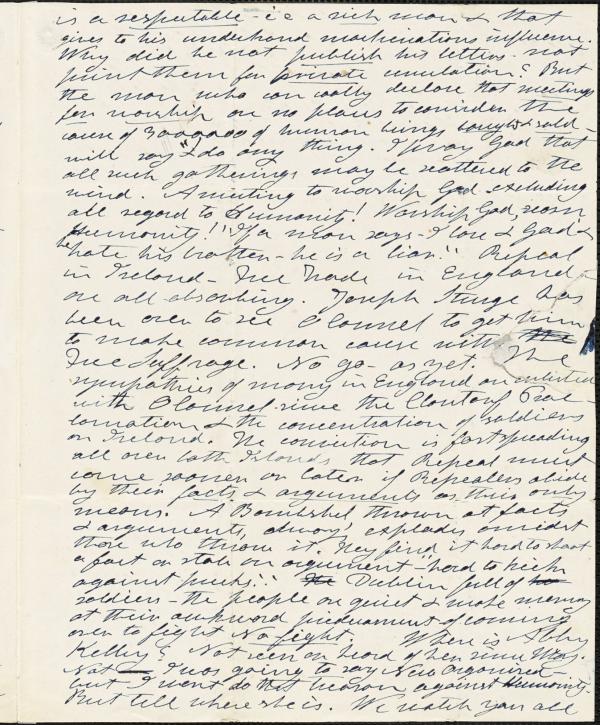 is a respectable - i e a rich man & that
gives to his underhand machinations influence.
Why did he not publish his letters - not
print them for private circulation? But
the man who can coolly declare that meetings
for worship are no places to consider the
cause of 3000000 of human beings bought & sold -
will say "& do any thing. I pray God that
all such gatherings may be scattered to the
wind. A meeting to worship God excluding
all regard to Humanity! Worship God, scorn
Humanity!! "If a man says - I love God &
hate his brother - he is a liar." Repeal
in Ireland - Free Trade in England -
are all absorbing. Joseph Sturge has
been over to see OConnel to get him
to make common cause with the
Free Suffrage. No go - as yet. The
sympathies of many in England are enlisted
with OConnel since the Clontarf Proc
lamation & the concentration of soldiers
on Ireland. The conviction is fast spreading
all over both Islands that Repeal must
come sooner or later if Repealers abide
by their facts & arguments as their only
means. A Bombshel thrown at facts
& arguments, always explodes amidst
those who throw it. They find it hard to shoot
a fact or stab an argument - "hard to kick
against pricks." The Dublin full of
soldiers - the people are quiet & make merry
at their awkward predicament of coming
over to fight No fight. Where is Abby
Kelley? Not seen or heard of her since
Not I was going to say New Organized -
but I wont do that treason against Humanity.
But tell where she is. We watch you all